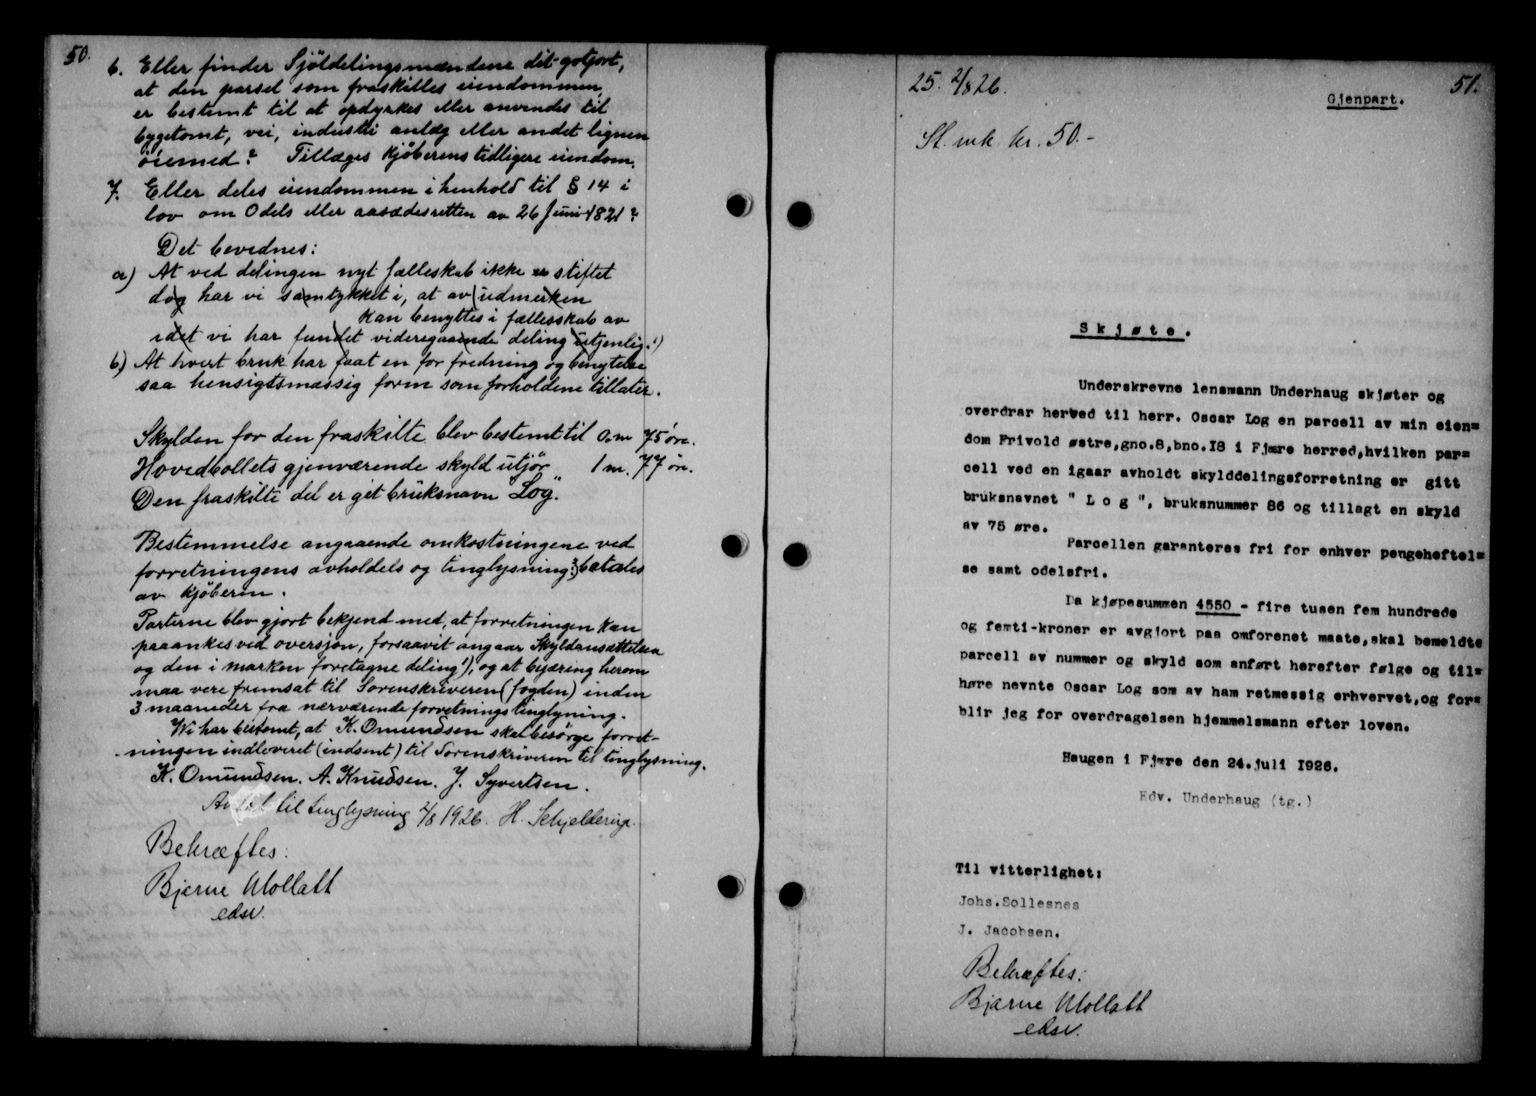 50.
6. Eller finder Sjöldelingsmændene det gotjort,
at den parsel som fraskilles eiendommen,
er bestemt til at opdyrkes eller anvendes til
bygetomt, vei, industri anlæg eller andet lignen
öiemed? Tillæges kjöberens tidligere eiendom.
7. Eller deles eiendommen i henhold til § 14 i
lov om Odels eller aasædesretten av 26 Juni 1821?
Det bevidnes:
a) At ved delingen nyt fælleskab ikke er stiftet
dog har vi samtykket i, at av udmerken
kan benyttes i fællesskab av
idet vi har fundet videregaaende deling utjenlig.¹)
b) At hvert bruk har faat en for fredning og benytelse
saa hensigtsmæssig form som forholdene tillater.
Skylden for den fraskilte blev bestemt til 0 m 75 öre.
Hovedbollets gjenværende skyld utjör 1 m. 77 öre.
Den fraskilte del er git bruksnavn "Log".
Bestemmelse angaaende omkostningene ved
forretningens avholdels og tinglysning: betales
av kjöberen.
Parterne blev gjort bekjend med, at forretningen kan
paaankes ved oversjön, forsaavit angaar Skyldansættelsen
og den i marken foretagne deling¹), og at bejæring herom
maa vere fremsat til Sorenskriveren (fogden) inden
3 maaneder fra nærværende forretnings tinglyning.
Vi har bestemt, at K. Omundsen skal besörge forret-
ningen indleveret (indsent) til Sorenskriveren til tinglysning.
K. Omundsen. A. Knudsen. J. Syvertsen.
til tinglysning 2/8 1926. H. Schjelderup.
Bekræftes:
Bjarne Mollatt
edsv.
25. 2/8 26.
Gjenpart.
51.
St. mk. kr. 50.-
Skjøte.
Underskrevne lensmann Underhaug skjøter og
overdrar herved til herr. Oscar Log en parcell av min eien=
dom Frivold østre,gno.8,bno.I8 i Fjære herred,hvilken par=
cell ved en igaar avholdt skylddelingsforretning er gitt
bruksnavnet " L o g ", bruksnummer 86 og tillagt en skyld
av 75 øre.
Parcellen garanteres fri for enhver pengeheftel=
se samt odelsfri.
Da kjøpesummen 4550 - fire tusen fem hundrede
og femti-kroner er avgjort paa omforenet maate,skal bemeldte
parcell av nummer og skyld som anført herefter følge og til=
høre nevnte Oscar Log som av ham retmessig erhvervet,og for=
blir jeg for overdragelsen hjemmelsmann efter loven.
Haugen i Fjære den 24.juli I926.
Edv. Underhaug (tg.)
Til vitterlighet:
Johs.Sollesnes
J. Jacobsen.
Bekræftes:
Bjarne Mollatt
edsv.